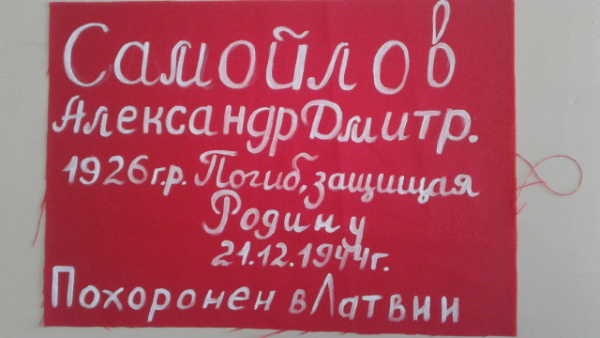 Самойлов
Александр Дмитр.
1926г.р. Погиб, защищая
Родину
21.12.1944г.
Похоронен в Латвии